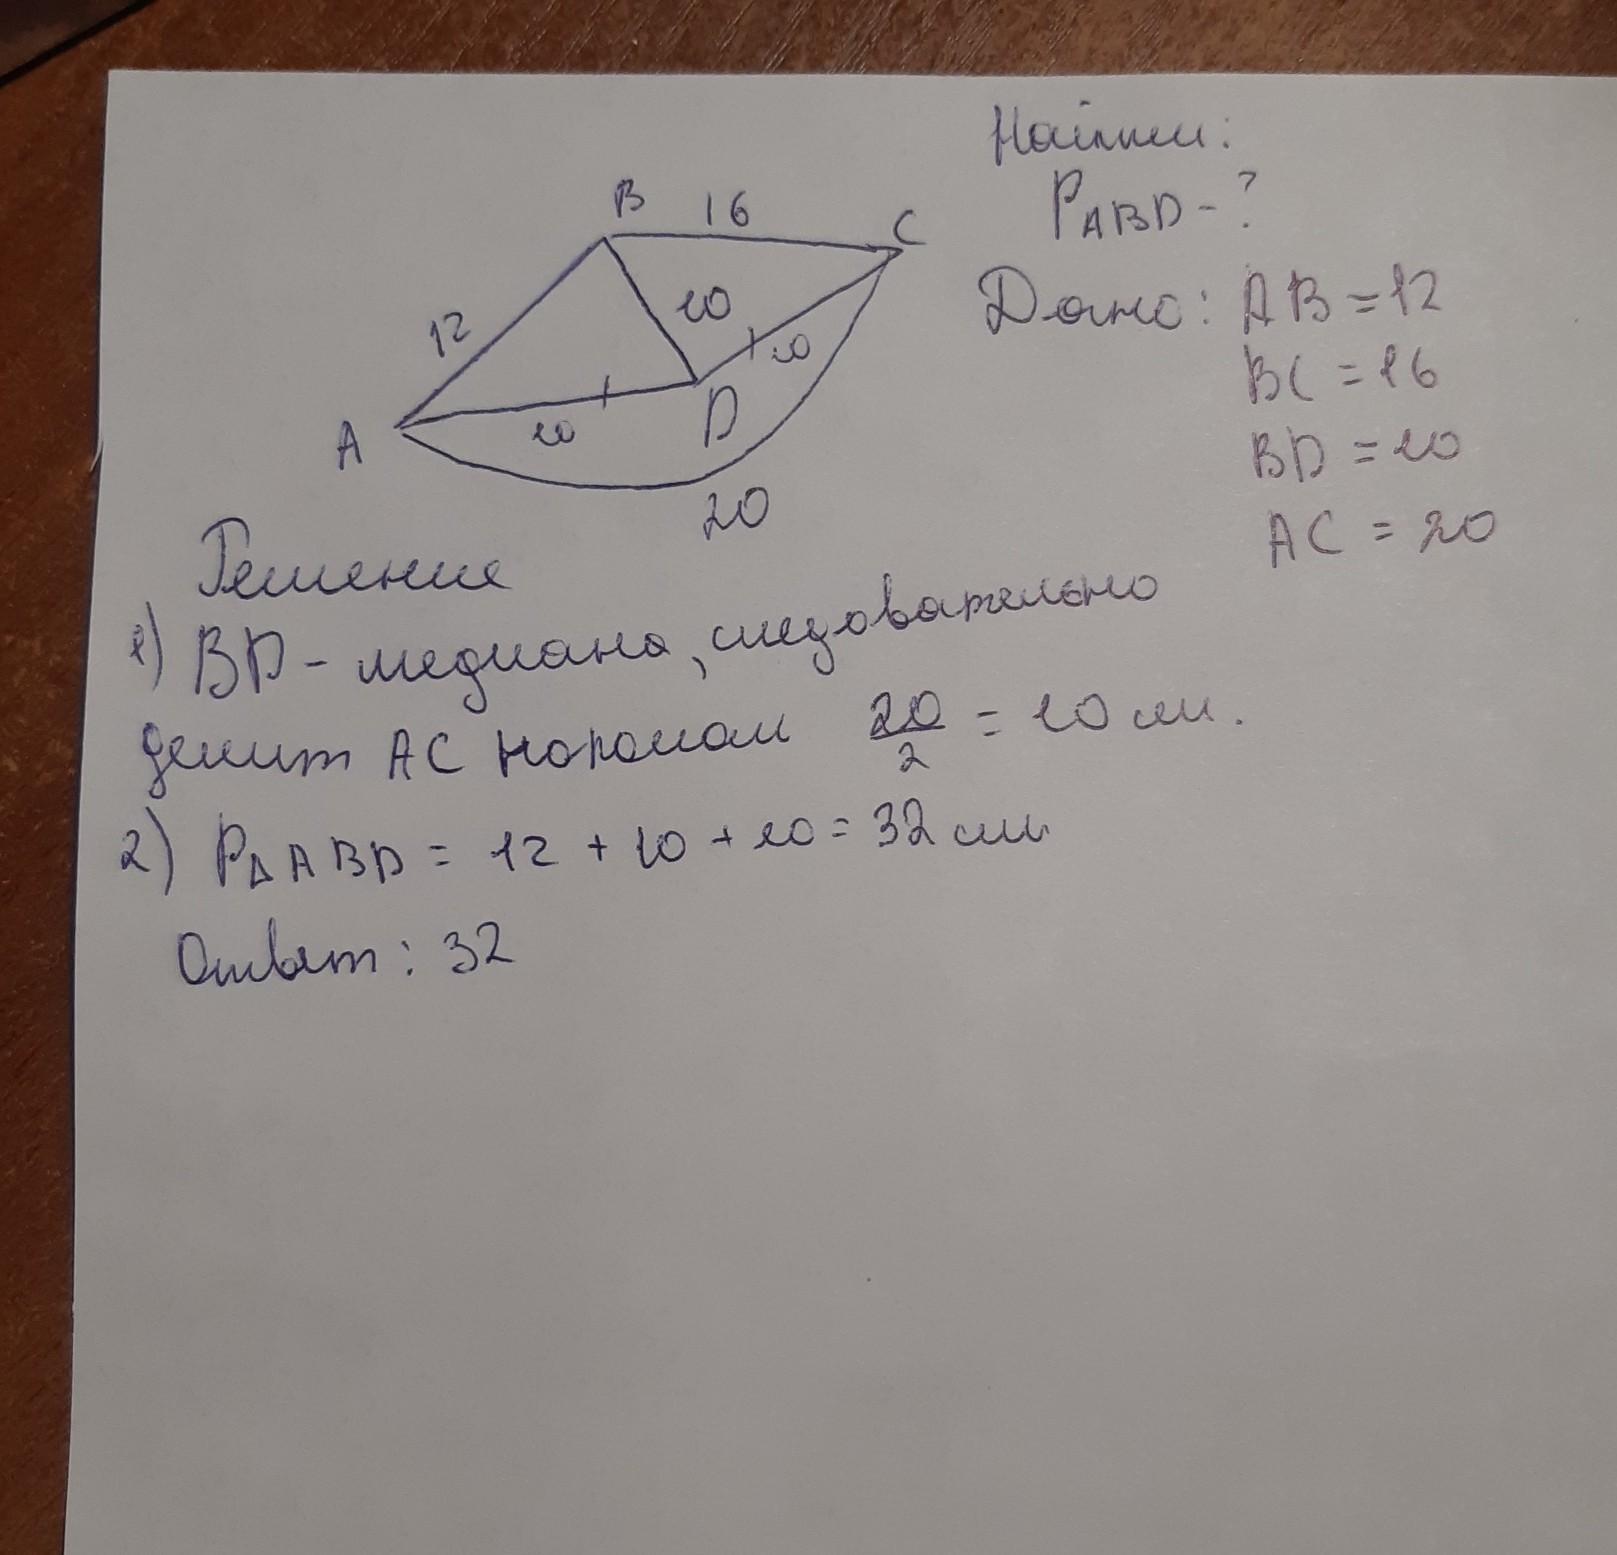 Найти:
P ABD - ?
Дано: AB = 12
BC = 16
BD = 10
AC = 20
B 16 C
12 10 10
A 10 D
20
Решение
1) BD - медиана, следовательно
делит AC пополам 20/2 = 10 см.
2) P△ABD = 12 + 10 + 10 = 32 см
Ответ: 32